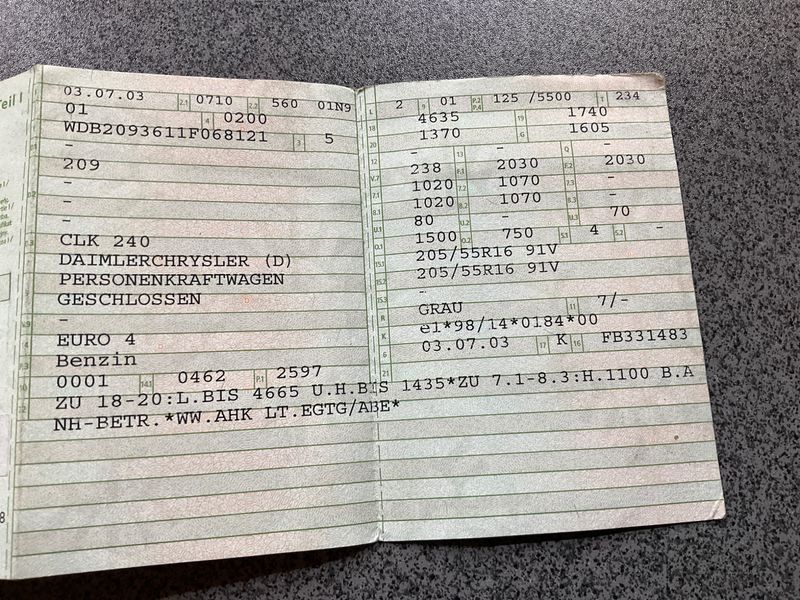 Teil I
03.07.03 2.1 0710 2.2 560 01N9
01 4 0200
WDB2093611F068121 3 5
-
209
-
-
-
CLK 240
DAIMLERCHRYSLER (D)
PERSONENKRAFTWAGEN
GESCHLOSSEN
-
EURO 4
Benzin
0001 14.1 0462 P.1 2597
L 2 9 01 P.2 P.4 125 /5500 T 234
18 4635 19 1740
20 1370 G 1605
12 - 13 - Q -
V.7 238 F.1 2030 F.2 2030
7.1 1020 7.2 1070 7.3 -
8.1 1020 8.2 1070 8.3 -
U.1 80 U.2 - U.3 70
O.1 1500 O.2 750 S.1 4 S.2 -
15.1 205/55R16 91V
15.2 205/55R16 91V
15.3 -
R GRAU 11 7/-
K e1*98/14*0184*00
6 03.07.03 17 K 16 FB331483
21
ZU 18-20:L.BIS 4665 U.H.BIS 1435*ZU 7.1-8.3:H.1100 B.A
NH-BETR.*WW.AHK LT.EGTG/ABE*